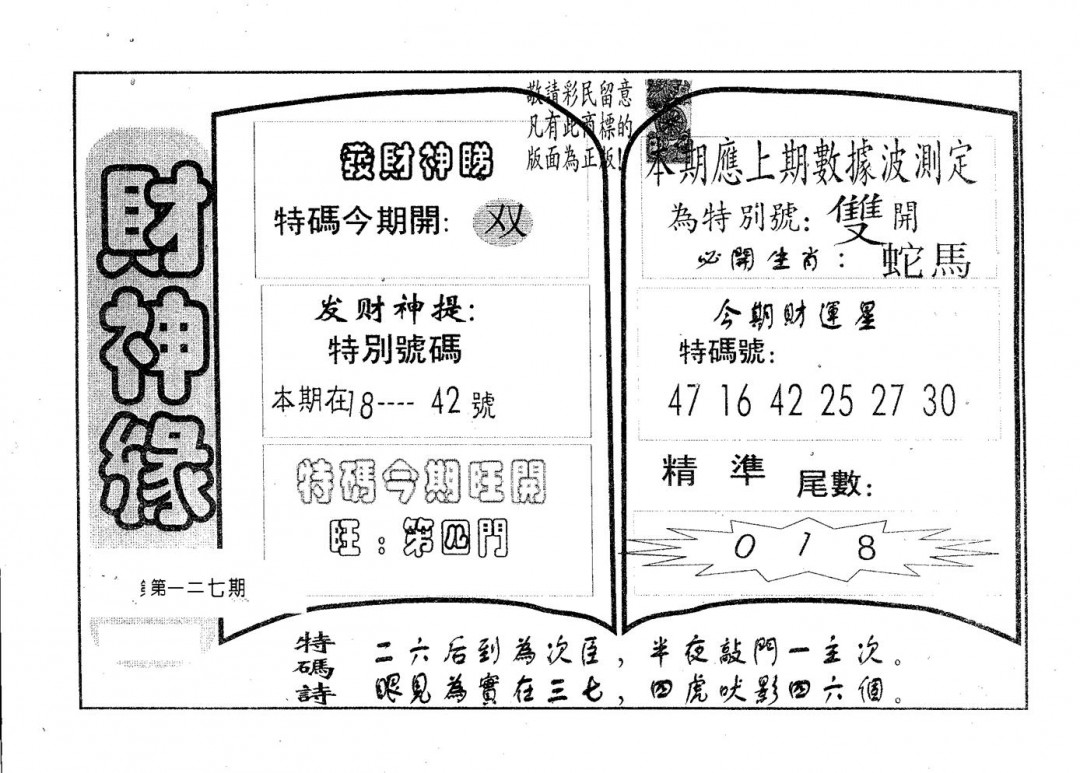 財神緣
第一二七期
敬請彩民留意
凡有此商標的
版面為正版!
發財神睇
特碼今期開: 双
发财神提:
特別號碼
本期在18---- 42號
特碼今期旺開
旺:第四門
本期應上期數據波測定
為特別號: 雙開
必開生肖: 蛇馬
今期財運星
特碼號:
47 16 42 25 27 30
精準 尾數:
0 1 8
特碼詩
二六后到為次臣,半夜敲門一主次。
眼見為實在三七,四虎吠影四六個。